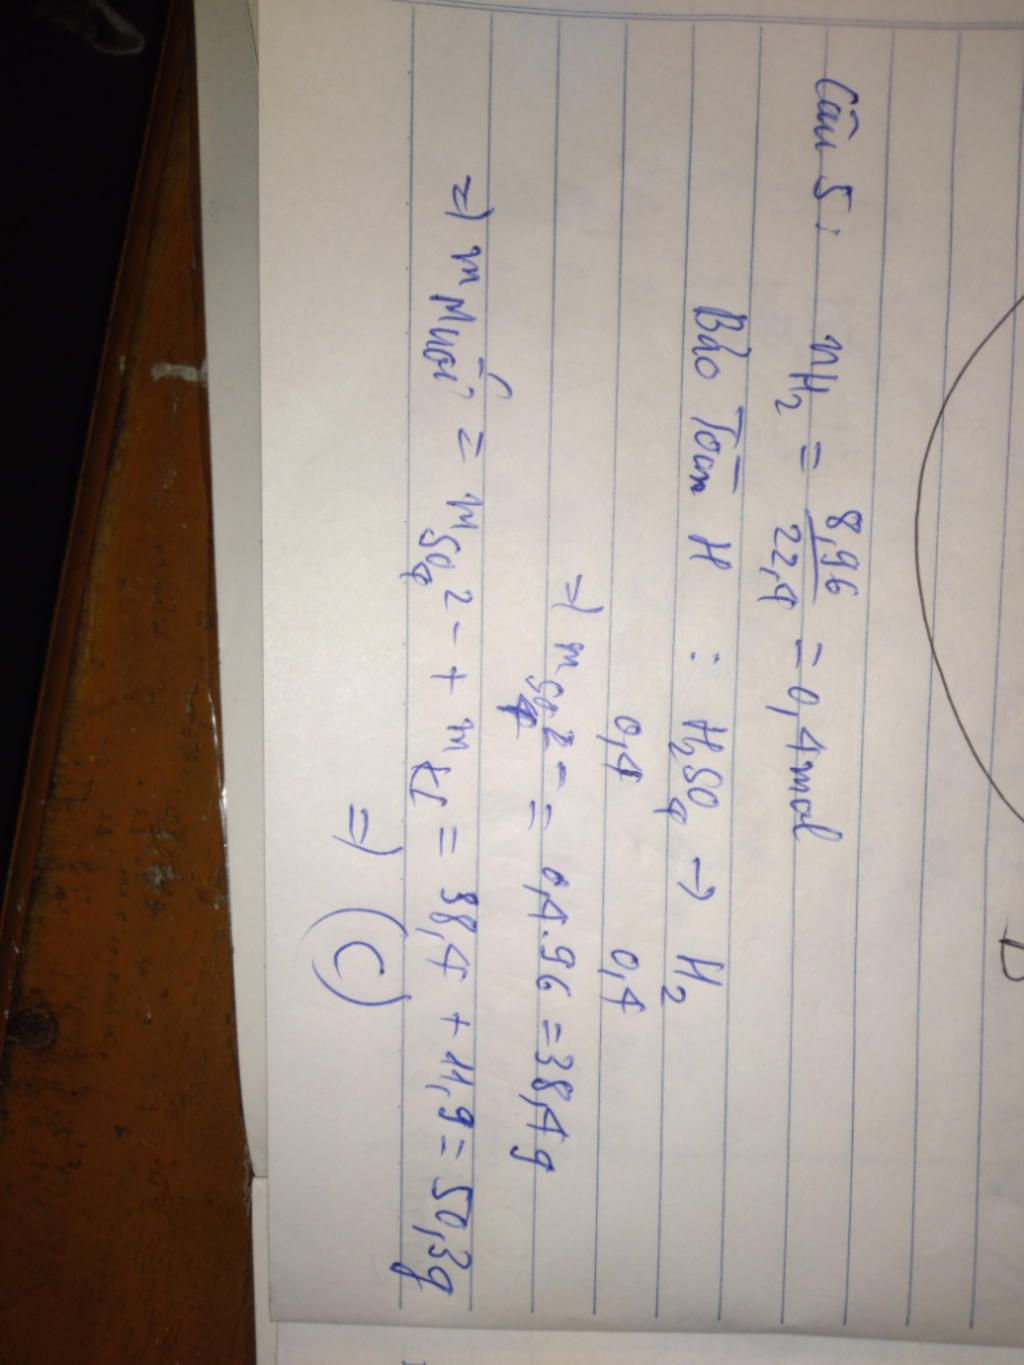 Câu 5: nH2 = 8,96/22,4 = 0,4 mol
Bảo Toàn H : H2SO4 → H2
0,4 0,4
=) mSO4 2- = 0,4.96 = 38,4 g
=) m Muối = mSO4 2- + m KL = 38,4 + 11,9 = 50,3g
=) C
D